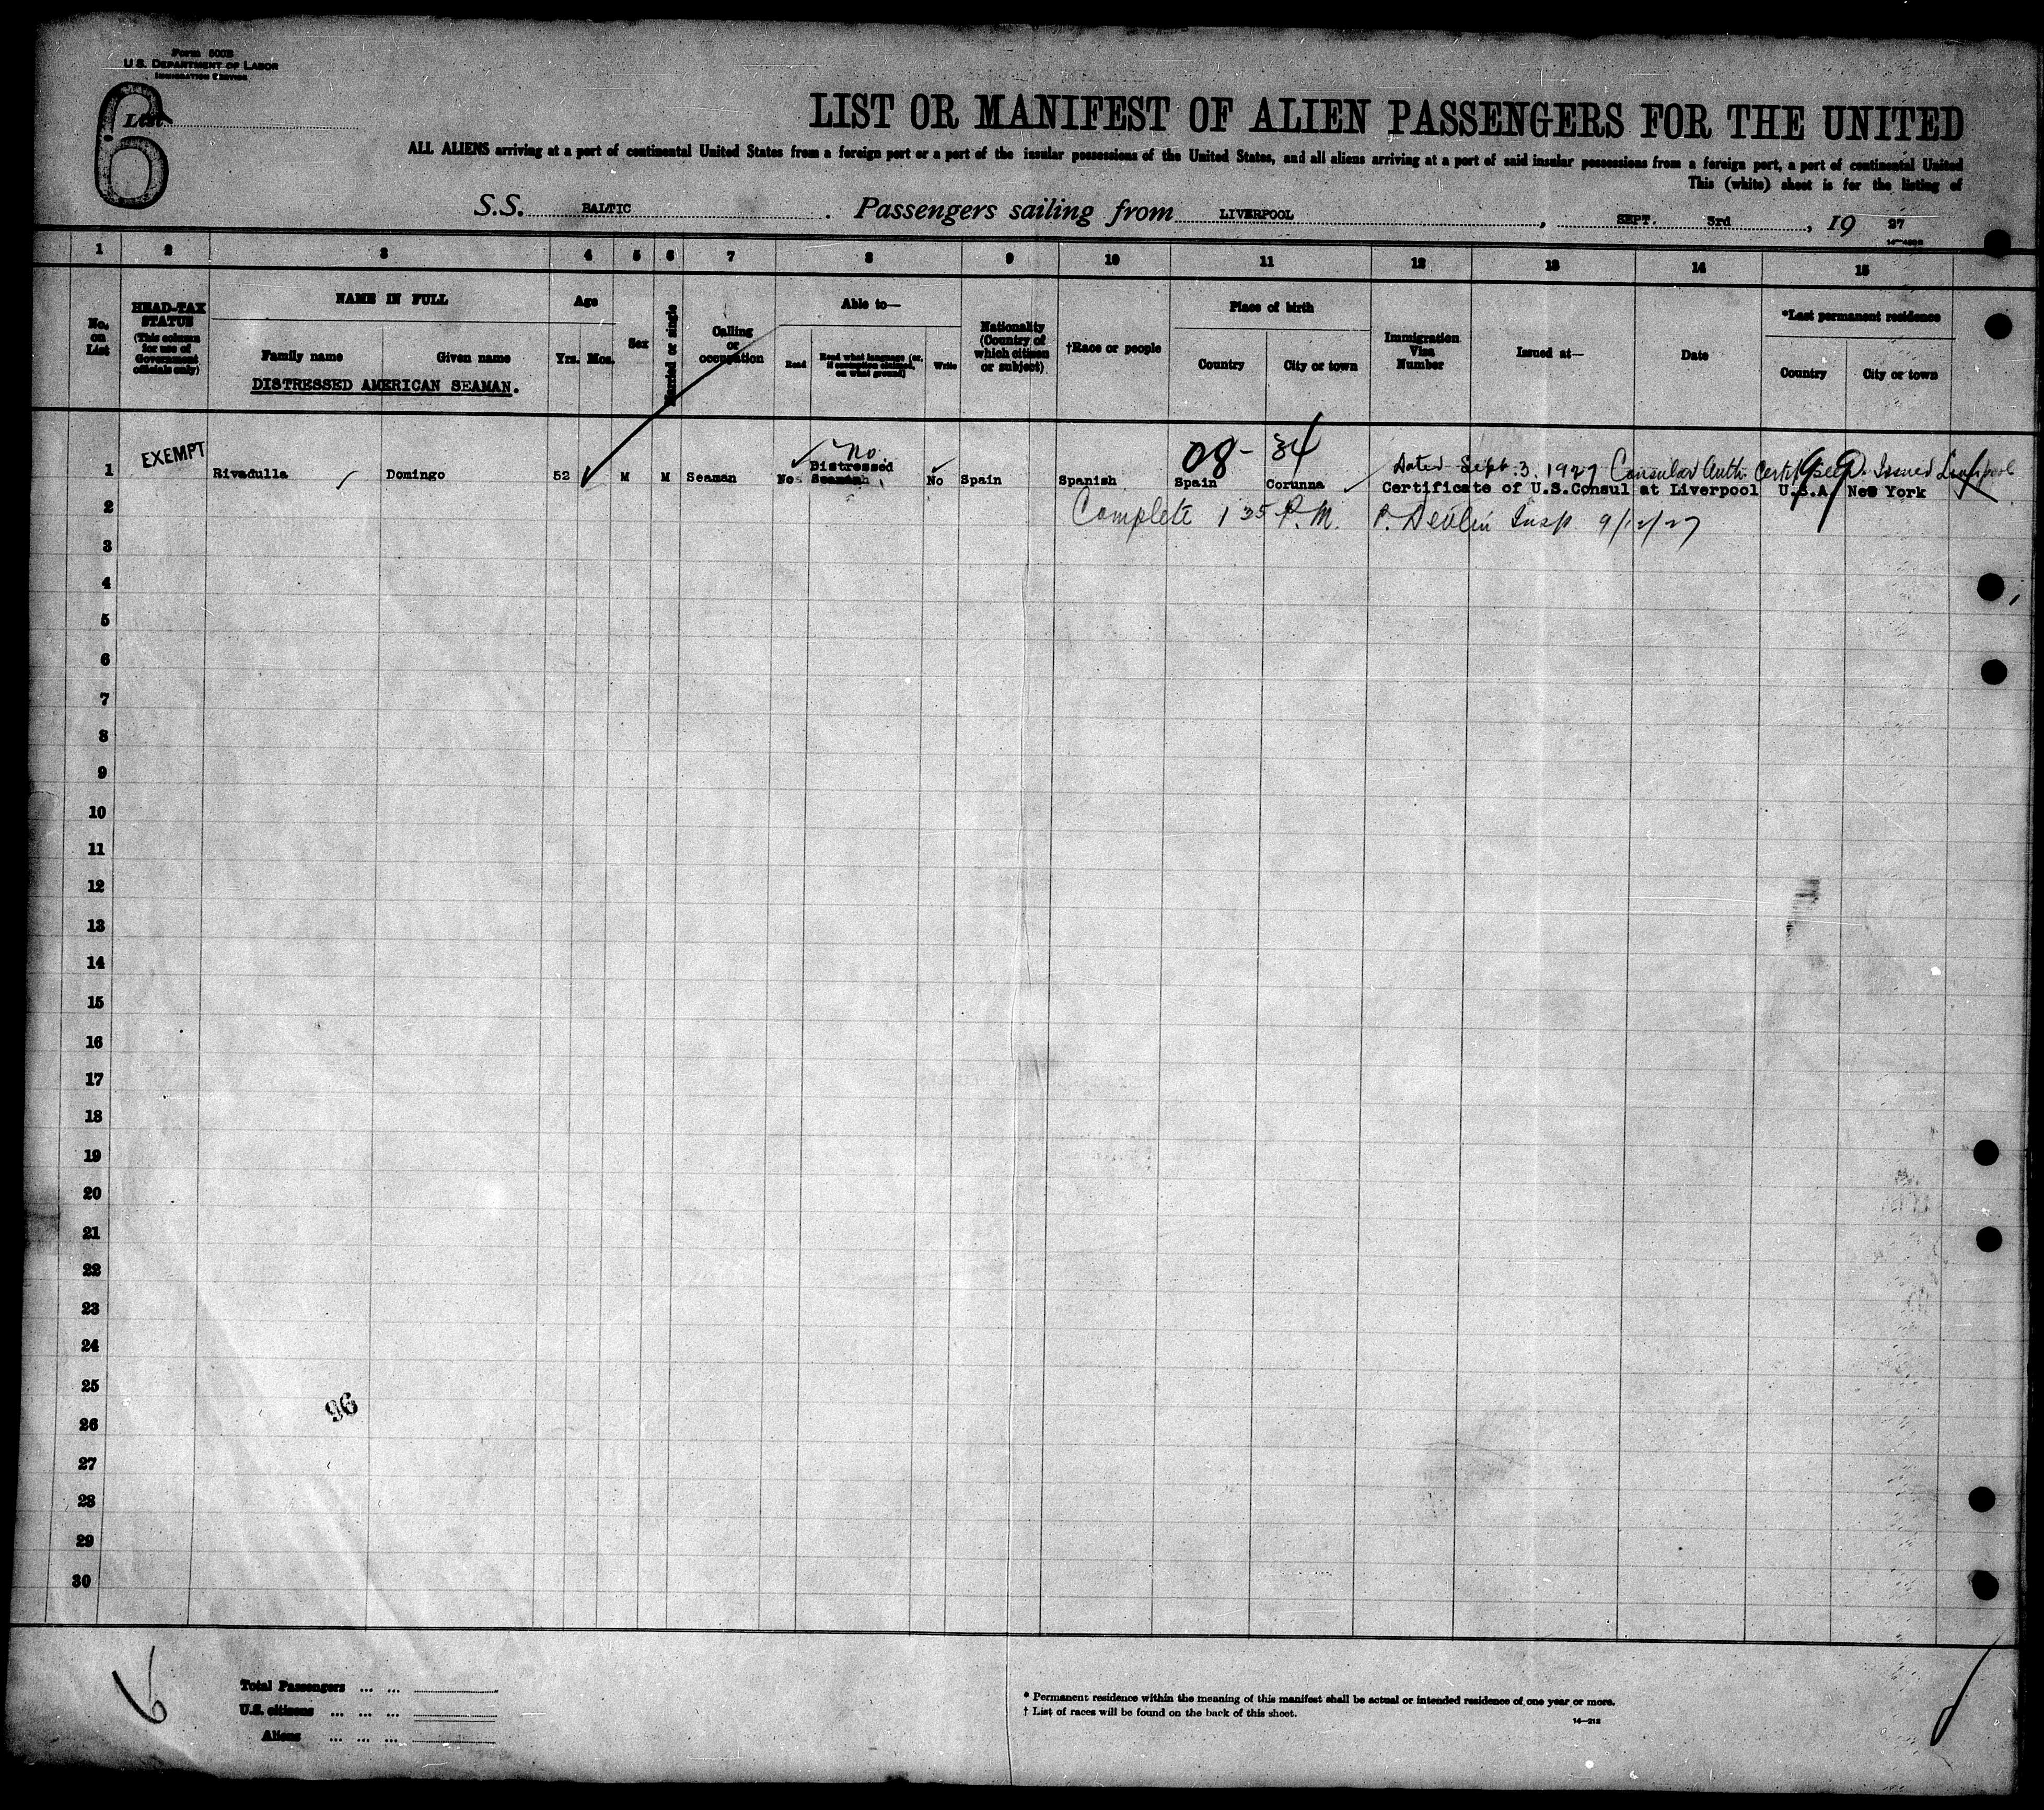 Form 500B
U.S. DEPARTMENT OF LABOR
IMMIGRATION SERVICE
6
List
LIST OR MANIFEST OF ALIEN PASSENGERS FOR THE UNITED
ALL ALIENS arriving at a port of continental United States from a foreign port or a port of the insular possessions of the United States, and all aliens arriving at a port of said insular possessions from a foreign port, a port of continental United
This (white) sheet is for the listing of
S.S. BALTIC. Passengers sailing from LIVERPOOL, SEPT. 3rd, 19 27
1 2 3 4 5 6 7 8 9 10 11 12 13 14 15
No. on List
HEAD-TAX STATUS
(This column for use of Government officials only)
NAME IN FULL
Family name Given name
DISTRESSED AMERICAN SEAMAN.
Age
Yrs. Mos.
Sex
Married or single
Calling or occupation
Able to—
Read Read what language (or, if exemption claimed, on what ground) Write
Nationality (Country of which citizen or subject)
†Race or people
Place of birth
Country City or town
Immigration Visa Number
Issued at—
Date
*Last permanent residence
Country City or town
EXEMPT No. 08- 34 Dated Sept. 3, 1927 Consular Auth. Issued Liverpool
1 Rivadulla Domingo 52 M M Seaman No Distressed Seaman No Spain Spanish Spain Corunna Certificate of U.S.Consul at Liverpool U.S.A. New York
2 Complete 1 35 P.M. P. Devlin Insp 9/12/27
3
4
5
6
7
8
9
10
11
12
13
14
15
16
17
18
19
20
21
22
23
24
25
96
26
27
28
29
30
6
Total Passengers ... ...
U.S. citizens ... ... ...
Aliens ... ... ...
* Permanent residence within the meaning of this manifest shall be actual or intended residence of one year or more.
† List of races will be found on the back of this sheet.
14—218